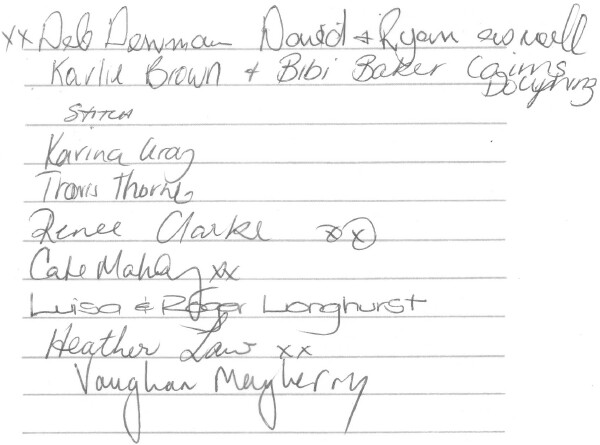 xx Deb Denman David & Ryan aswell
Karlie Brown & Bibi Baker Cairns
STITCH
Karina Gray
Travis Thorne
Renee Clarke xx
Cate Mahey xx
Luisa & Roger Longhurst
Heather Law xx
Vaughan Magherry